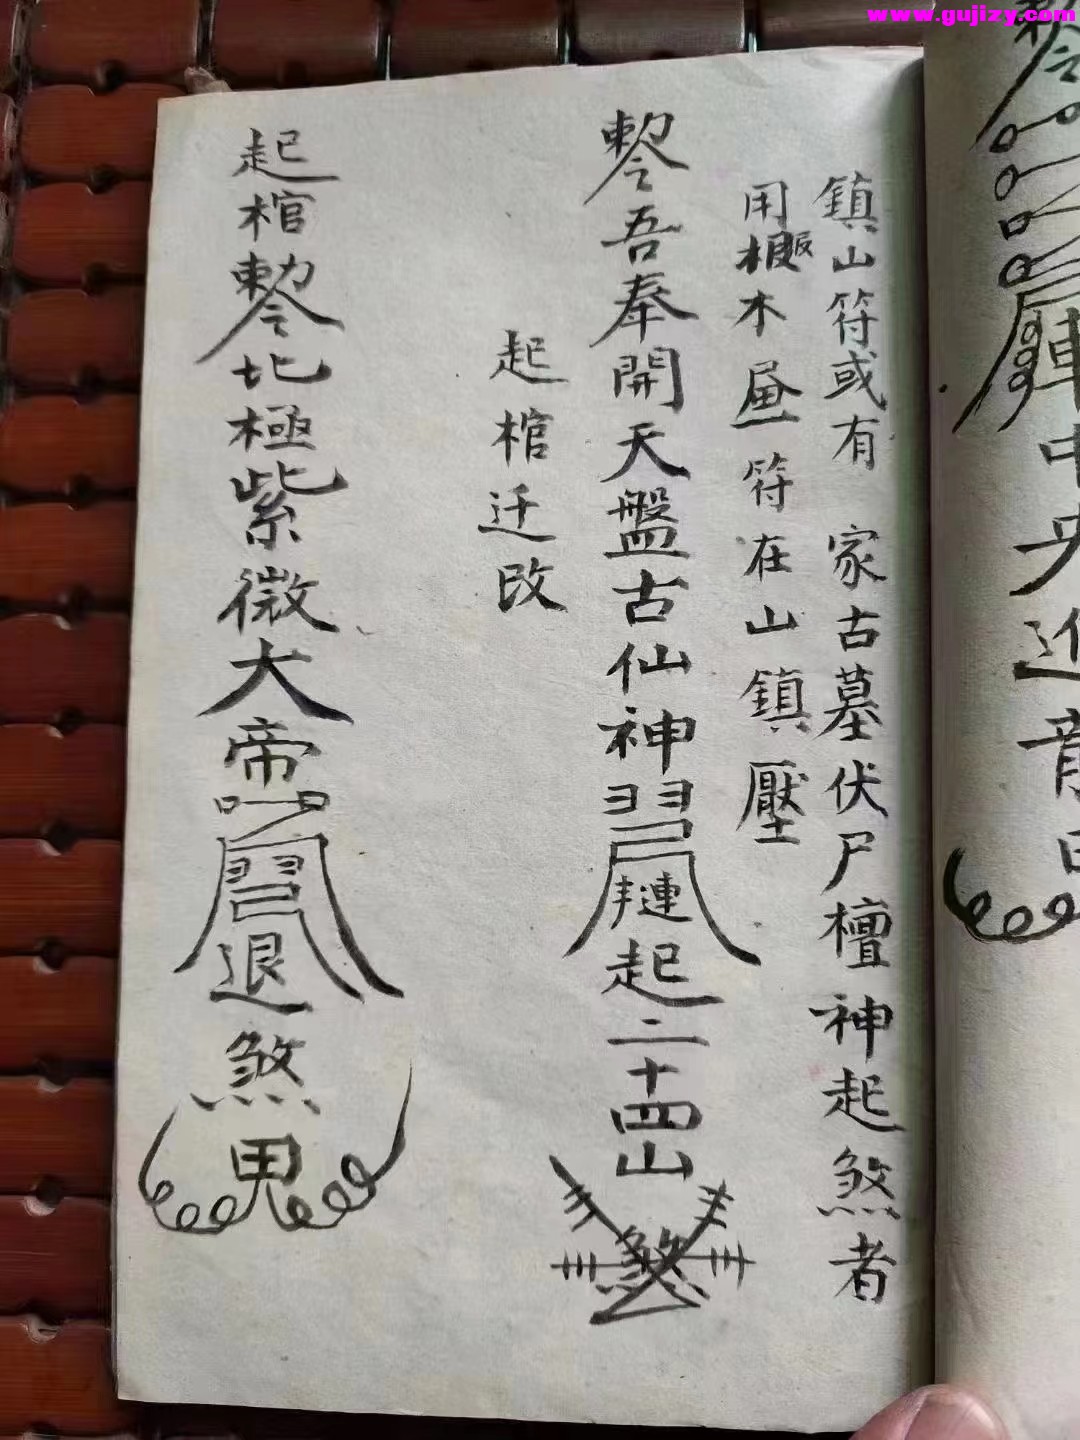 www.gujizy.com
鎮山符或有 家古墓伏尸檀神起煞者
用椴木画符在山鎮壓
吾奉開天盤古仙神
起二十四山
煞
起棺迁改
起棺
北極紫微大帝
退煞鬼
中央